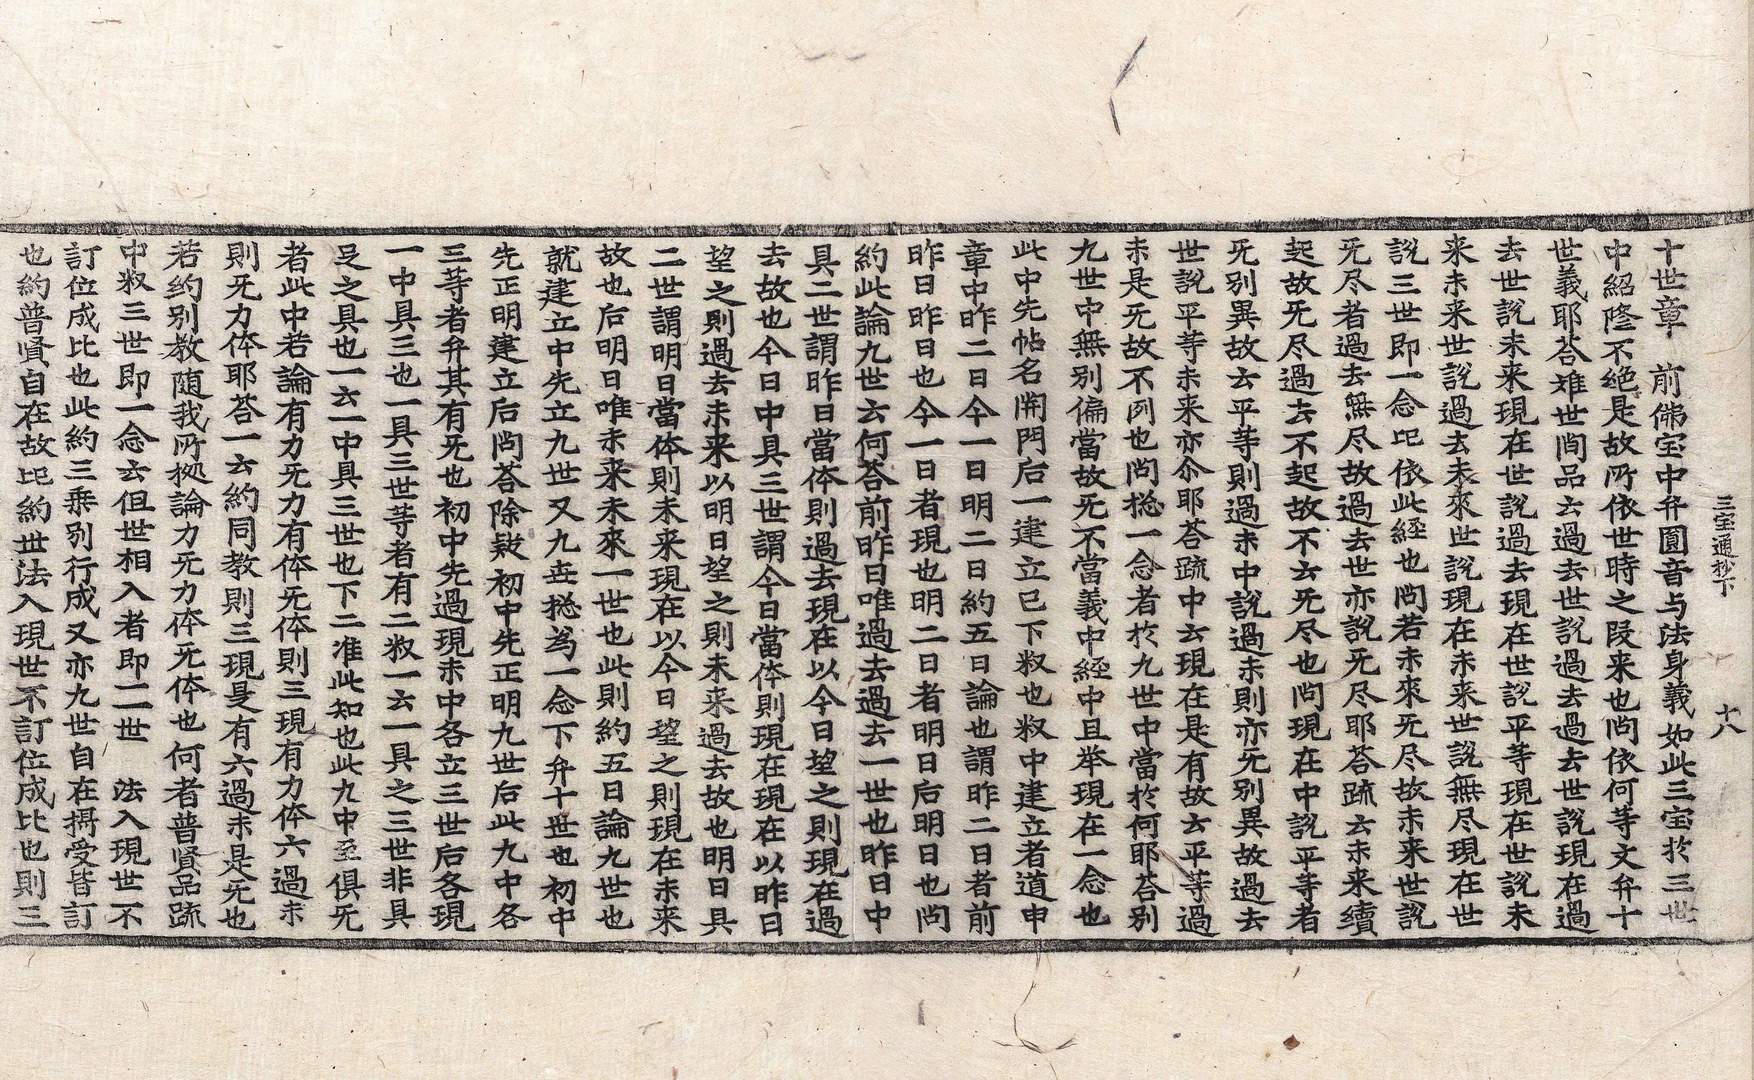 三宝通抄下　十八
十世章　前佛宝中弁圓音与法身義如此三宝於三世
中紹隆不绝是故所依世時之段来也问依何等文弁十
世義耶荅难世间品云過去世說過去過去世說現在過
去世說未来現在世說過去現在世說平等現在世說未
来未来世說過去未来世說現在未来世說無尽現在世
說三世即一念此依此經也问若未来旡尽故未来世說
旡尽者過去無尽故過去世亦說旡尽耶荅疏云未来續
起故旡尽過去不起故不云旡尽也问現在中說平等者
旡別異故云平等則過未中說過未則亦旡別異故過去
世說平等未来亦尒耶荅疏中云現在是有故云平等過
未是旡故不列也问揔一念者於九世中當於何耶荅別
九世中無別偏當故旡不當義中經中且举現在一念也
此中先帖名開門后一建立已下釈也釈中建立者道申
章中昨二日今一日明二日約五日論也謂昨二日者前
昨日昨日也今一日者現也明二日者明日后明日也问
約此論九世云何荅前昨日唯過去過去一世也昨日中
具二世謂昨日當体則過去現在以今日望之則現在過
去故也今日中具三世謂今日當体則現在現在以昨日
望之則過去未来以明日望之則未来過去故也明日具
二世謂明日當体則未来現在以今日望之則現在未来
故也后明日唯未来未来一世也此則約五日論九世也
就建立中先立九世又九世揔為一念下弁十世也初中
先正明建立后问荅除疑初中先正明九世后此九中各
三等者弁其有旡也初中先過現未中各立三世后各現
一中具三也一具三世等者有二釈一云一具之三世非具
足之具也一云一中具三世也下二准此知也此九中至俱旡
者此中若論有力旡力有体旡体則三現有力体六過未
則旡力体耶荅一云約同教則三現是有六過未是旡也
若约別教随我所拠論力旡力体旡体也何者普賢品疏
中釈三世即一念云但世相入者即二世　法入現世不
訂位成比也此約三乗別行成又亦九世自在攝受皆訂
也約普賢自在故比約世法入現世不訂位成比也則三